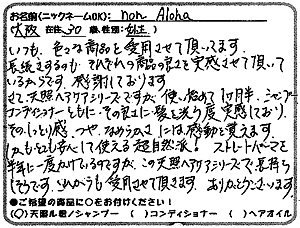 お名前(ニックネームOK): non Aloha
大阪 在住 30 歳、性別: 女性
いつも、色々な商品を愛用させて頂いてます。
長続きするのも、それぞれの商品の良さを実感させて頂いて
いるからです。感謝しております。
さて、天然ヘアケアシリーズですが、使い始めて1ヶ月半、シャンプー
コンディショナーともに、その良さに髪を洗う度実感しており、
そのしっとり感、つや、なめらかさには感動を覚えます。
しかもとても安心して使える超自然派! ストレートパーマを
半年に一度かけているのですが、この天然ヘアケアシリーズで、長持ち
しそうです。これからも愛用させて頂きます。ありがとうございます。
●ご希望の商品に○をお付けください!
(○)天那ル癒ノシャンプー ( )コンディショナー ( )ヘアオイル